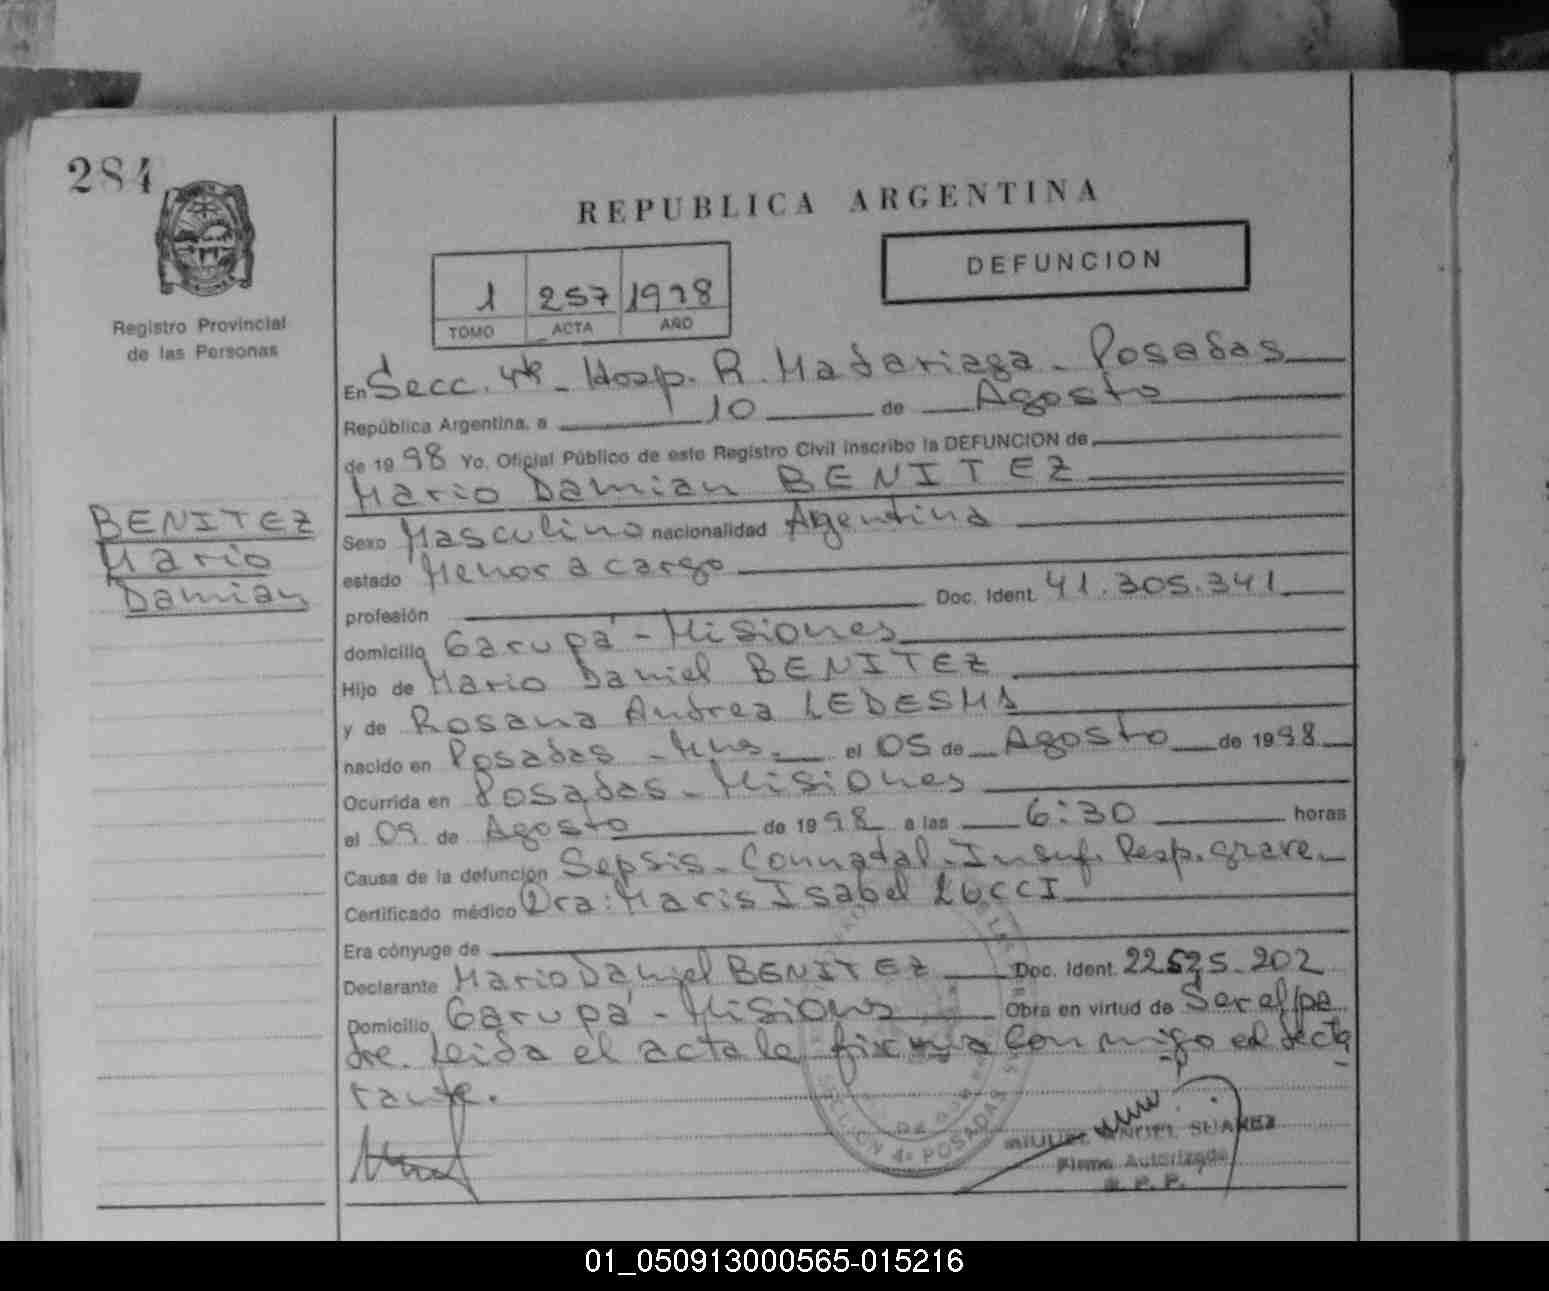 284
REPUBLICA ARGENTINA
DEFUNCION
1 257 1998
TOMO ACTA AÑO
Registro Provincial
de las Personas
En Secc. 4ta - Hosp. R. Madariaga - Posadas
República Argentina, a 10 de Agosto
de 1998 Yo, Oficial Público de este Registro Civil inscribo la DEFUNCION de
Mario Damian BENITEZ
BENITEZ
Mario
Damian
Sexo Masculino nacionalidad Argentina
estado Menor a cargo
profesión Doc. Ident. 41.305.341
domicilio Garupá - Misiones
Hijo de Mario Daniel BENITEZ
y de Rosana Andrea LEDESMA
nacido en Posadas - Mnes. el 05 de Agosto de 1998
Ocurrida en Posadas - Misiones
el 09 de Agosto de 1998 a las 6:30 horas
Causa de la defunción Sepsis - Connatal - Insuf. Resp. grave
Certificado médico Dra: Maris Isabel LUCCI
Era cónyuge de
Declarante Mario Daniel BENITEZ Doc. Ident. 22.525.202
Domicilio Garupá - Misions Obra en virtud de Ser el pa
dre. Leida el acta la firma conmigo el decla
rante.
SECCION 4ª POSADAS
MIGUEL ANGEL SUAREZ
Firma Autorizada
R. P. P.
01_050913000565-015216